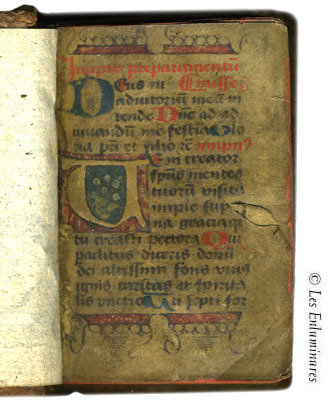 Deus in
adiutorium meū in
tende Dne ad ad
iuuandū me festina Glo
ria pri et filio
Veni creator
spūs mentes
tuorum visita
imple supe
na gracia que
tu creasti pectora Qui
paclitus diceris donū
dei altissimi fons viuus
ignis caritas et spirita
lis vnctio Tu septi for
© Les Enluminures